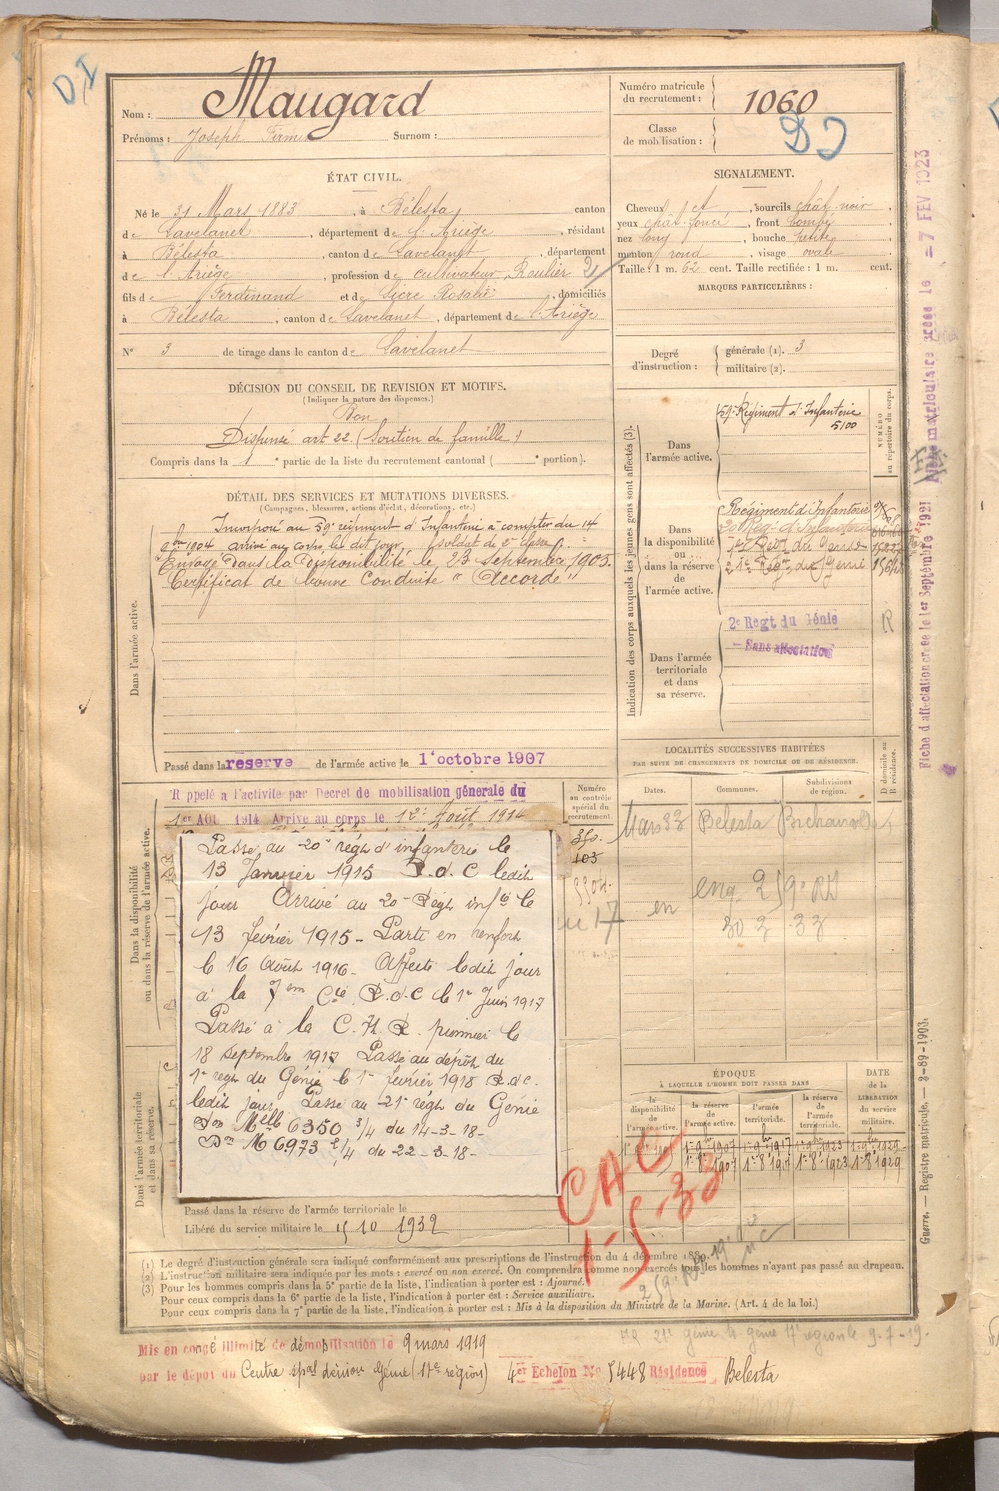 D.I
Nom : Maugard
Prénoms : Joseph Firmin Surnom :
Numéro matricule du recrutement : 1060
Classe de mobilisation :
ÉTAT CIVIL.
Né le 31 Mars 1883, à Bélesta, canton
de Lavelanet, département de l'Ariège, résidant
à Bélesta, canton de Lavelanet, département
de l'Ariège, profession de cultivateur Roulier 2
fils de Ferdinand et de Sicre Rosalie, domiciliés
à Bélesta, canton de Lavelanet, département de l'Ariège
N° 3 de tirage dans le canton de Lavelanet
SIGNALEMENT.
Cheveux et, sourcils chât. noir,
yeux chât. foncé, front bombé,
nez long, bouche petite,
menton rond, visage ovale
Taille : 1 m. 62 cent. Taille rectifiée : 1 m. cent.
MARQUES PARTICULIÈRES :
Degré d'instruction : générale (1). 3
militaire (2).
DÉCISION DU CONSEIL DE REVISION ET MOTIFS.
(Indiquer la nature des dispenses.)
Bon
Dispensé art 22 (Soutien de famille)
Compris dans la 1e partie de la liste du recrutement cantonal ( e portion).
DÉTAIL DES SERVICES ET MUTATIONS DIVERSES.
(Campagnes, blessures, actions d'éclat, décorations, etc.)
Dans l'armée active.
Incorporé au 59e régiment d'Infanterie à compter du 14
9bre 1904 arrivé au corps le dit jour soldat de 2e classe.
Envoyé dans la disponibilité le 23 Septembre 1905.
Certificat de bonne Conduite "Accordé"
Passé dans la réserve de l'armée active le 1er octobre 1907
Indication des corps auxquels les jeunes gens sont affectés (3).
NUMÉRO au répertoire du corps.
Dans l'armée active. 59e Régiment d'Infanterie
5100
Dans la disponibilité ou dans la réserve de l'armée active.
Régiment d'Infanterie
20e Rég. d'Infanterie
1er Regt du Génie
21e Régt du Génie
Dans l'armée territoriale et dans sa réserve.
2e Regt du Génie
Sans affectation
R
Fiche d'affectation créée le 1er Septembre 1921
Fiche matriculaire créée le = 7 FEV 1923
LOCALITÉS SUCCESSIVES HABITÉES
PAR SUITE DE CHANGEMENTS DE DOMICILE OU DE RÉSIDENCE.
Dates. Communes. Subdivisions de région. D domicile ou R résidence.
Mars 33 Belesta
en
Dans la disponibilité ou dans la réserve de l'armée active.
Rappelé à l'activité par Decret de mobilisation générale du
1er AOU 1914 Arrivé au corps le 12 Août 1914
Numéro au contrôle spécial du recrutement
103
Passé au 20e régt d'infanterie le
13 Janvier 1915 R.d.C ledit
jour Arrivé au 20e Régt infie le
13 février 1915 - Parti en renfort
le 16 Août 1916. Affecté ledit jour
à la 7em Cie R.d.C le 1er Juin 1917
Passé à la C.H.R. pionnier le
18 septembre 1917 Passé au dépôt du
1er régt du Génie le 1er février 1918 R.d.C.
ledit jour Passé au 21e régt du Génie
Don Mlle 6350 3/4 du 14-3-18-
Don M 6973 2/4 du 22-3-18-
Dans l'armée territoriale et dans sa réserve.
Passé dans la réserve de l'armée territoriale le
Libéré du service militaire le 15 10 1932
ÉPOQUE
À LAQUELLE L'HOMME DOIT PASSER DANS
la disponibilité de l'armée active. la réserve de l'armée active. l'armée territoriale. la réserve de l'armée territoriale.
DATE de la LIBÉRATION du service militaire.
1-8bre 1907 1-8 1917 1-8 1923 1-8 1929
CAC
1-5-33
Guerre. — Registre matricule. 3-89-1903.
(1) Le degré d'instruction générale sera indiqué conformément aux prescriptions de l'instruction du 4 décembre 1889.
(2) L'instruction militaire sera indiquée par les mots : exercé ou non exercé. On comprendra comme non exercés tous les hommes n'ayant pas passé au drapeau.
(3) Pour les hommes compris dans la 5e partie de la liste, l'indication à porter est : Ajourné.
Pour ceux compris dans la 6e partie de la liste, l'indication à porter est : Service auxiliaire.
Pour ceux compris dans la 7e partie de la liste, l'indication à porter est : Mis à la disposition du Ministre de la Marine. (Art. 4 de la loi.)
Mis en congé illimité de démobilisation le 9 mars 1919
par le dépôt du Centre spal démon Génie (17e région) 4er Echelon No 5448 Résidence Belesta